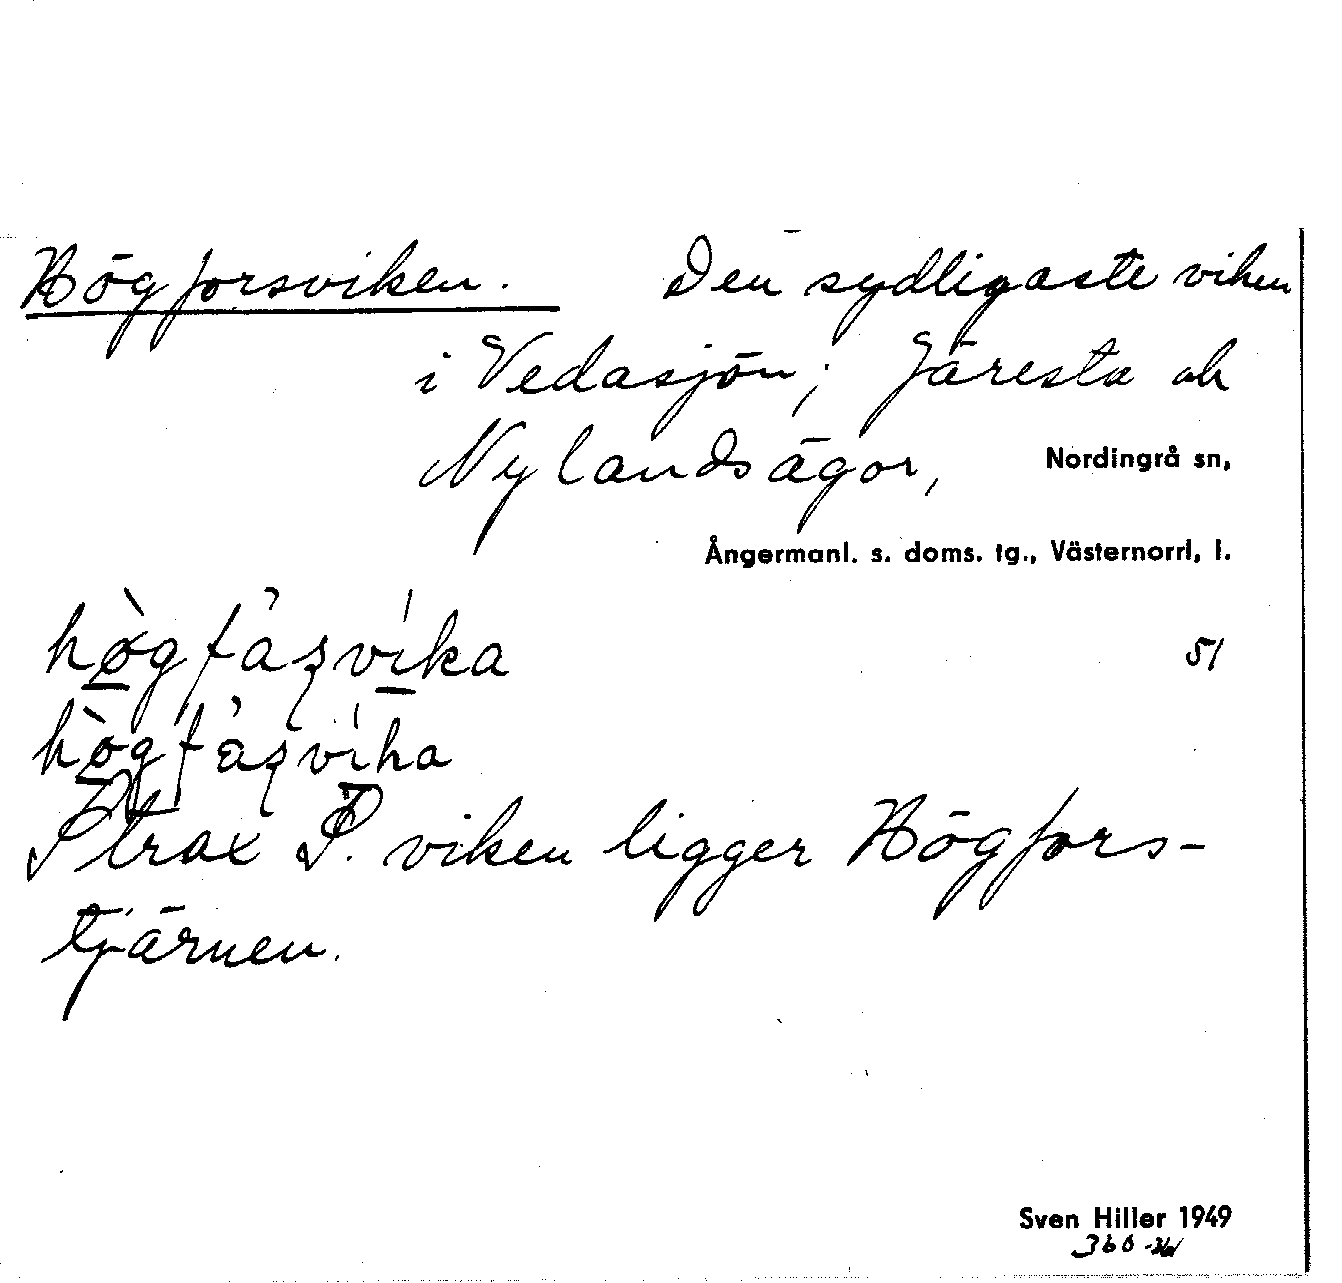 Högforsviken. Den sydligaste viken
i Vedasjön; Järesta och
Nylandsägor, Nordingrå sn,
Ångermanl. s. doms. tg., Västernorrl, l.
hø̀gfåṣvíka 51
hø̀gfåṣvíka
Strax S. viken ligger Högfors-
tjärnen.
Sven Hiller 1949